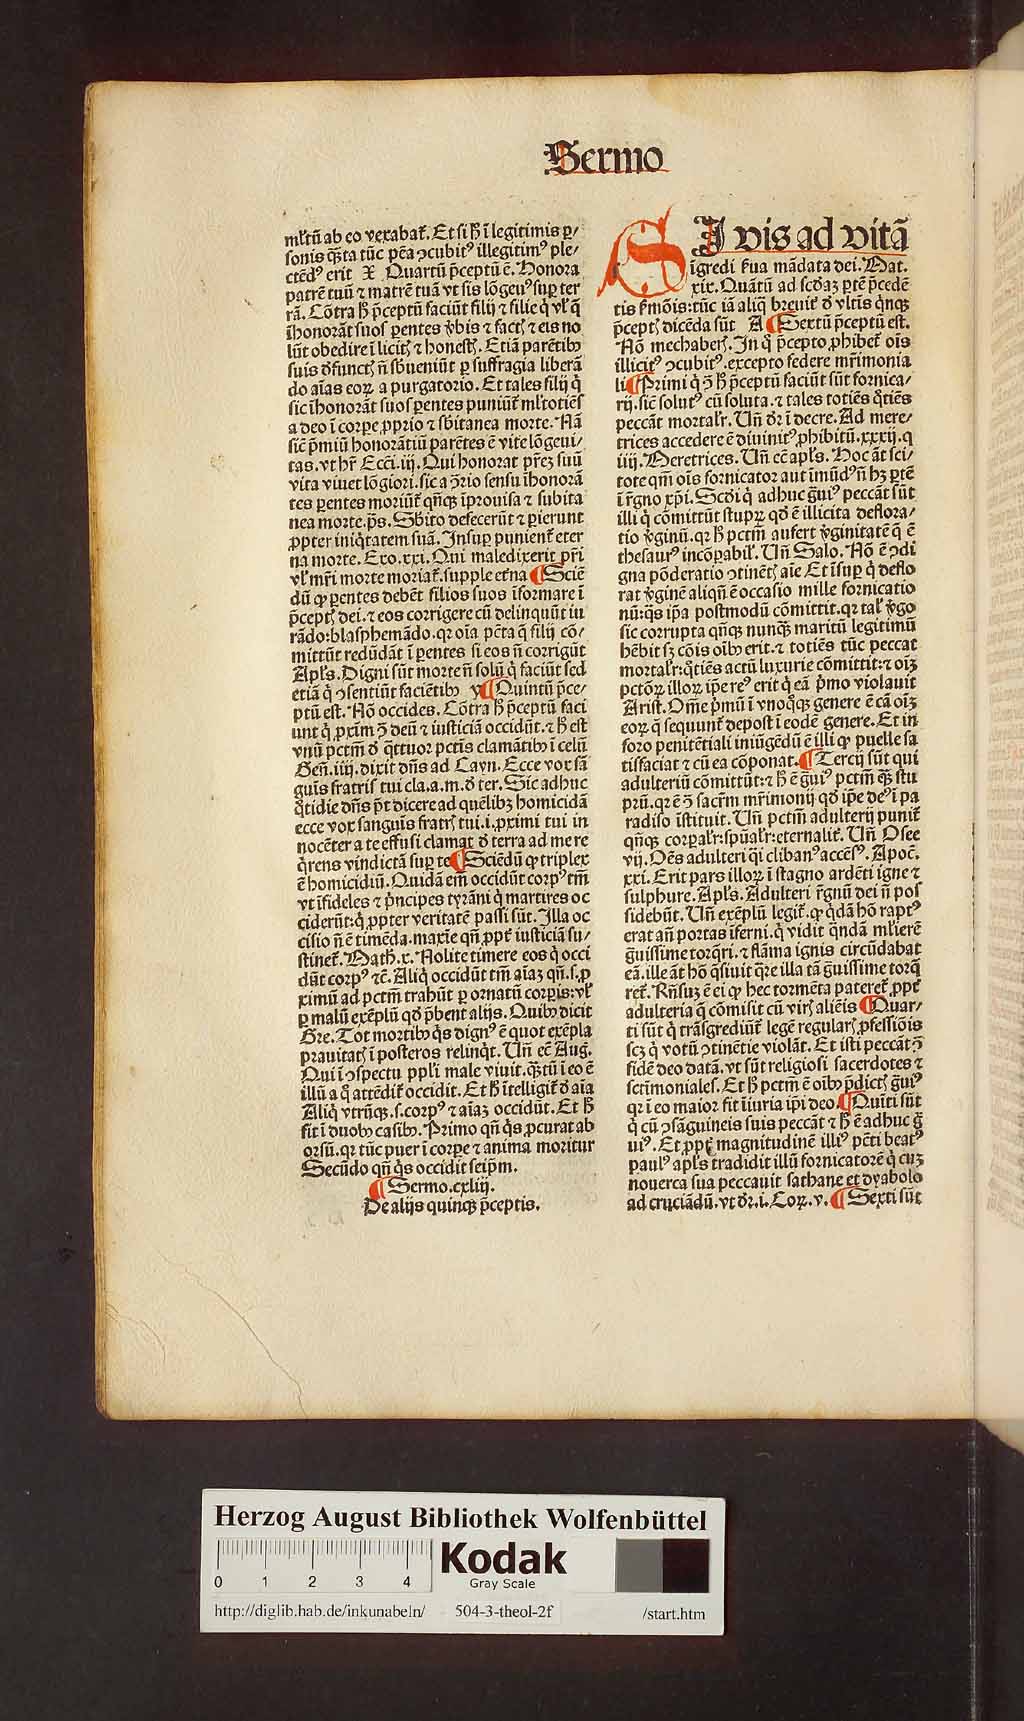 Sermo
ml̃tũ ab eo vexabat᷑. Et si hͦ ĩ legitimis ꝑ/
sonis q̃sta tũc pẽa ↄcubitꝰ illegitimꝰ ple/
ctẽdꝰ erit X Quartũ p̃ceptũ ẽ. Honora
patrẽ tuũ ⁊ matrẽ tuã vt sis lõgeuꝰ suꝑ ter
rã. Cõtra hͦ p̃ceptũ faciũt filij ⁊ filie q̇ vl̓ q̃
ĩhonorãt suos ꝑentes v̓bis ⁊ factꝭ ⁊ eis no
lũt obedire ĩ licitꝭ ⁊ honestꝭ. Etiã parẽtibꝰ
suis d̓functꝭ ñ sb̓ueniũt ꝑ suffragia liberã
do aĩas eoꝝ a purgatorio. Et tales filij q̇
sic ĩhonorãt suos ꝑentes puniũt᷑ ml̓totiẽs
a deo ĩ corꝑe ꝓprio ⁊ sb̓itanea morte. Nã
sic̃ p̃miũ honorãtiũ parẽtes ẽ vite lõgeui/
tas. vt hr̃ Ecc̃i. iij. Qui honorat pr̃eʒ suũ
vita viuet lõgiori. sic a ↄ̃rio sensu ĩhonorã
tes ꝑentes moriũt᷑ qñqꝫ ĩprouisa ⁊ subita
nea morte. p̃s. Sb̓ito defecerũt ⁊ ꝑierunt
ꝓpter iniq̇tatem suã. Insuꝑ punient᷑ eter
na morte. Exo. xxi. Qui maledixerit pr̃i
vl̓ mr̃i morte moriat᷑. supple et̃na ¶Sciẽ
dũ ꝙ ꝑentes debẽt filios suos ĩformare ĩ
p̃ceptꝭ dei. ⁊ eos corrigere cũ delinquũt iu
rãdo: blasphemãdo. qꝛ oĩa pctã q̃ filij cõ/
mittũt redũdãt ĩ ꝑentes si eos ñ corrigũt
Apl̓s. Digni sũt morte ñ solũ q̇ faciũt sed
etiã q̇ ↄsentiũt faciẽtibꝰ v ¶Quintũ p̃ce/
ptũ est. Nõ occides. Cõtra hͦ p̃ceptũ faci
unt q̇ ꝓximũ ↄ̃ deũ ⁊ iusticiã occidũt. ⁊ hͦ est
vnũ pctm̃ d̓ q̃ttuor pctĩs clamãtibꝰ ĩ celũ
Geñ. iiij. dixit dñs ad Cayn. Ecce vox sã
guĩs fratris tui cla. a. m. d̓ ter. Sic adhuc
q̇tidie dñs p̃t dicere ad quẽlibꝫ homicidã
ecce vox sanguĩs fratrꝭ tui. i. ꝓximi tui in
nocẽter a te effusi clamat d̓ terra ad me re
q̇rens vindictã suꝑ te ¶Sciẽdũ ꝙ triplex
ẽ homicidiũ. Quidã em̃ occidũt corpꝰ tm̃
vt ĩfideles ⁊ p̃ncipes tyrãni q̇ martires oc
ciderũt: q̇ ꝓpter veritatẽ passi sũt. Illa oc
cisio ñ ẽ timẽda. maxĩe qñ ꝓpt᷑ iusticiã su/
stinet᷑. Math. x. Nolite timere eos q̇ occi
dũt corpꝰ ⁊c̃. Aliq̇ occidũt tm̃ aĩaʒ qñ. s. ꝓ
ximũ ad pctm̃ trahũt ꝑ ornatũ corꝑis: vl̓
ꝑ malũ exẽplũ qd̓ p̃bent alijs. Quibꝰ dicit
Gre. Tot mortibꝰ q̇s dignꝰ ẽ quot exẽpla
prauitatꝭ ĩ posteros relinq̇t. Vñ ec̃ Aug̃.
Qui ĩ ↄspectu ppl̓i male viuit. q̃stũ ĩ eo ẽ
illũ a q̊ attẽdit᷑ occidit. Et hͦ ĩtelligit᷑ d̓ aĩa
Aliq̇ vtrũqꝫ. s. corpꝰ ⁊ aĩaʒ occidũt. Et hͦ
fit ĩ duobꝰ casibꝰ. Primo qñ q̇s ꝓcurat ab
orsũ. qꝛ tũc puer ĩ corꝑe ⁊ anima moritur
Secũdo qñ q̇s occidit seip̃m.
¶Sermo. cxliij.
De alijs quinqꝫ p̃ceptis.
SI vis ad vitã
ĩgredi ẜua mãdata dei. Mat.
xix. Quãtũ ad scd̓aʒ ꝑtẽ p̃cedẽ
tis ẜmõis: tũc iã aliq̃ breuit᷑ d̓ vltĩs q̇nqꝫ
p̃ceptꝭ dicẽda sũt A ¶Sextũ p̃ceptũ est.
Nõ mechaberꝭ. In q̊ p̃cepto ꝓhibet᷑ oĩs
illicitꝰ ↄcubitꝰ. excepto federe mr̃imonia
li ¶Primi q̇ ↄ̃ hͦ p̃ceptũ faciũt sũt fornica/
rij. sic̃ solutꝰ cũ soluta. ⁊ tales totiẽs q̊tiẽs
peccãt mortalr̓. Vñ dr̃ ĩ decre. Ad mere/
trices accedere ẽ diuinitꝰ ꝓhibitũ. xxxij. q
iiij. Meretrices. Vñ ec̃ apl̓s. Hoc ãt sci/
tote qm̃ oĩs fornicator aut ĩmũdꝰ ñ hʒ ꝑtẽ
ĩ r̓gno xp̃i. Scd̓i q̇ adhuc g̃uiꝰ peccãt sũt
illi q̇ cõmittũt stupꝝ qd̓ ẽ illicita deflora/
tio v̓ginũ. qꝛ hͦ pctm̃ aufert v̓ginitatẽ q̃ ẽ
thesaurꝰ incõꝑabil̓. Vñ Salo. Nõ ẽ ↄdi
gna põderatio ↄtinẽtꝭ aĩe Et ĩsuꝑ q̇ deflo
rat v̓ginẽ aliqũ ẽ occasio mille fornicatio
nũ: q̃s ip̃a postmodũ cõmittit. qꝛ tal̓ v̓go
sic corrupta qñqꝫ nunqꝫ maritũ legitimũ
hẽbit sʒ cõis oĩbꝰ erit. ⁊ totiẽs tũc peccat
mortalr̓: q̊tiẽs actũ luxurie cõmittit: ⁊ oĩʒ
pctõꝝ illoꝝ ip̃e reꝰ erit q̇ eã p̓mo violauit
Arist. Om̃e p̓mũ ĩ vnoq̊qꝫ genere ẽ cã oĩʒ
eoꝝ q̃ sequunt᷑ depost ĩ eodẽ genere. Et in
foro penitẽtiali iniũgẽdũ ẽ illi ꝙ puelle sa
tisfaciat ⁊ cũ ea cõponat. ¶Tercij sũt qui
adulteriũ cõmittũt: ⁊ hͦ ẽ g̃uiꝰ pctm̃ q̃ꝫ stu
prũ. qꝛ ẽ ↄ̃ sacr̃m mr̃imonij qd̓ ip̃e deꝰ ĩ pa
radiso ĩstituit. Vñ pctm̃ adulterij punit᷑
qñqꝫ corꝑalr̓: sp̃ualr̓: eternalit᷑. Vñ Osee
vij. Oẽs adulteri q̃i clibanꝰ accẽsꝰ. Apoc̃.
xxi. Erit pars illoꝝ ĩ stagno ardẽti igne ⁊
sulphure. Apl̓s. Adulteri r̓gnũ dei ñ pos
sidebũt. Vñ exẽplũ legit᷑. ꝙ q̇dã hõ raptꝰ
erat añ portas ĩferni. q̇ vidit q̃ndã ml̓ierẽ
g̃uissime torq̃ri. ⁊ flãma ignis circũdabat
eã. ille ãt hõ q̃siuit q̃re illa tã g̃uissime torq̃
ret᷑. Rñsuʒ ẽ ei ꝙ hec tormẽta pateret᷑ ꝓpt᷑
adulteria q̃ cõmisit cũ virꝭ aliẽis ¶Quar/
ti sũt q̇ trãsgrediũt᷑ legẽ regularꝭ ꝓfessiõis
scʒ q̇ votũ ↄtinẽtie violãt. Et isti peccãt ↄ̃
fidẽ deo datã. vt sũt religiosi sacerdotes ⁊
sctĩmoniales. Et hͦ pctm̃ ẽ oĩbꝰ p̃dictꝭ g̃uiꝰ
qꝛ ĩ eo maior fit ĩiuria ip̃i deo. ¶Quĩti sũt
q̇ cũ ↄsãguineis suis peccãt ⁊ hͦ ẽ adhuc g̃
uiꝰ. Et ꝓpt᷑ magnitudinẽ illiꝰ pctĩ beatꝰ
paulꝰ apl̓s tradidit illũ fornicatorẽ q̇ cuʒ
nouerca sua peccauit sathane et dyabolo
ad cruciãdũ. vt dr̃. i. Coꝝ. v. ¶Sexti sũt
Herzog August Bibliothek Wolfenbüttel
0 1 2 3 4
Kodak
Gray Scale
http://diglib.hab.de/inkunabeln/ 504-3-theol-2f /start.htm